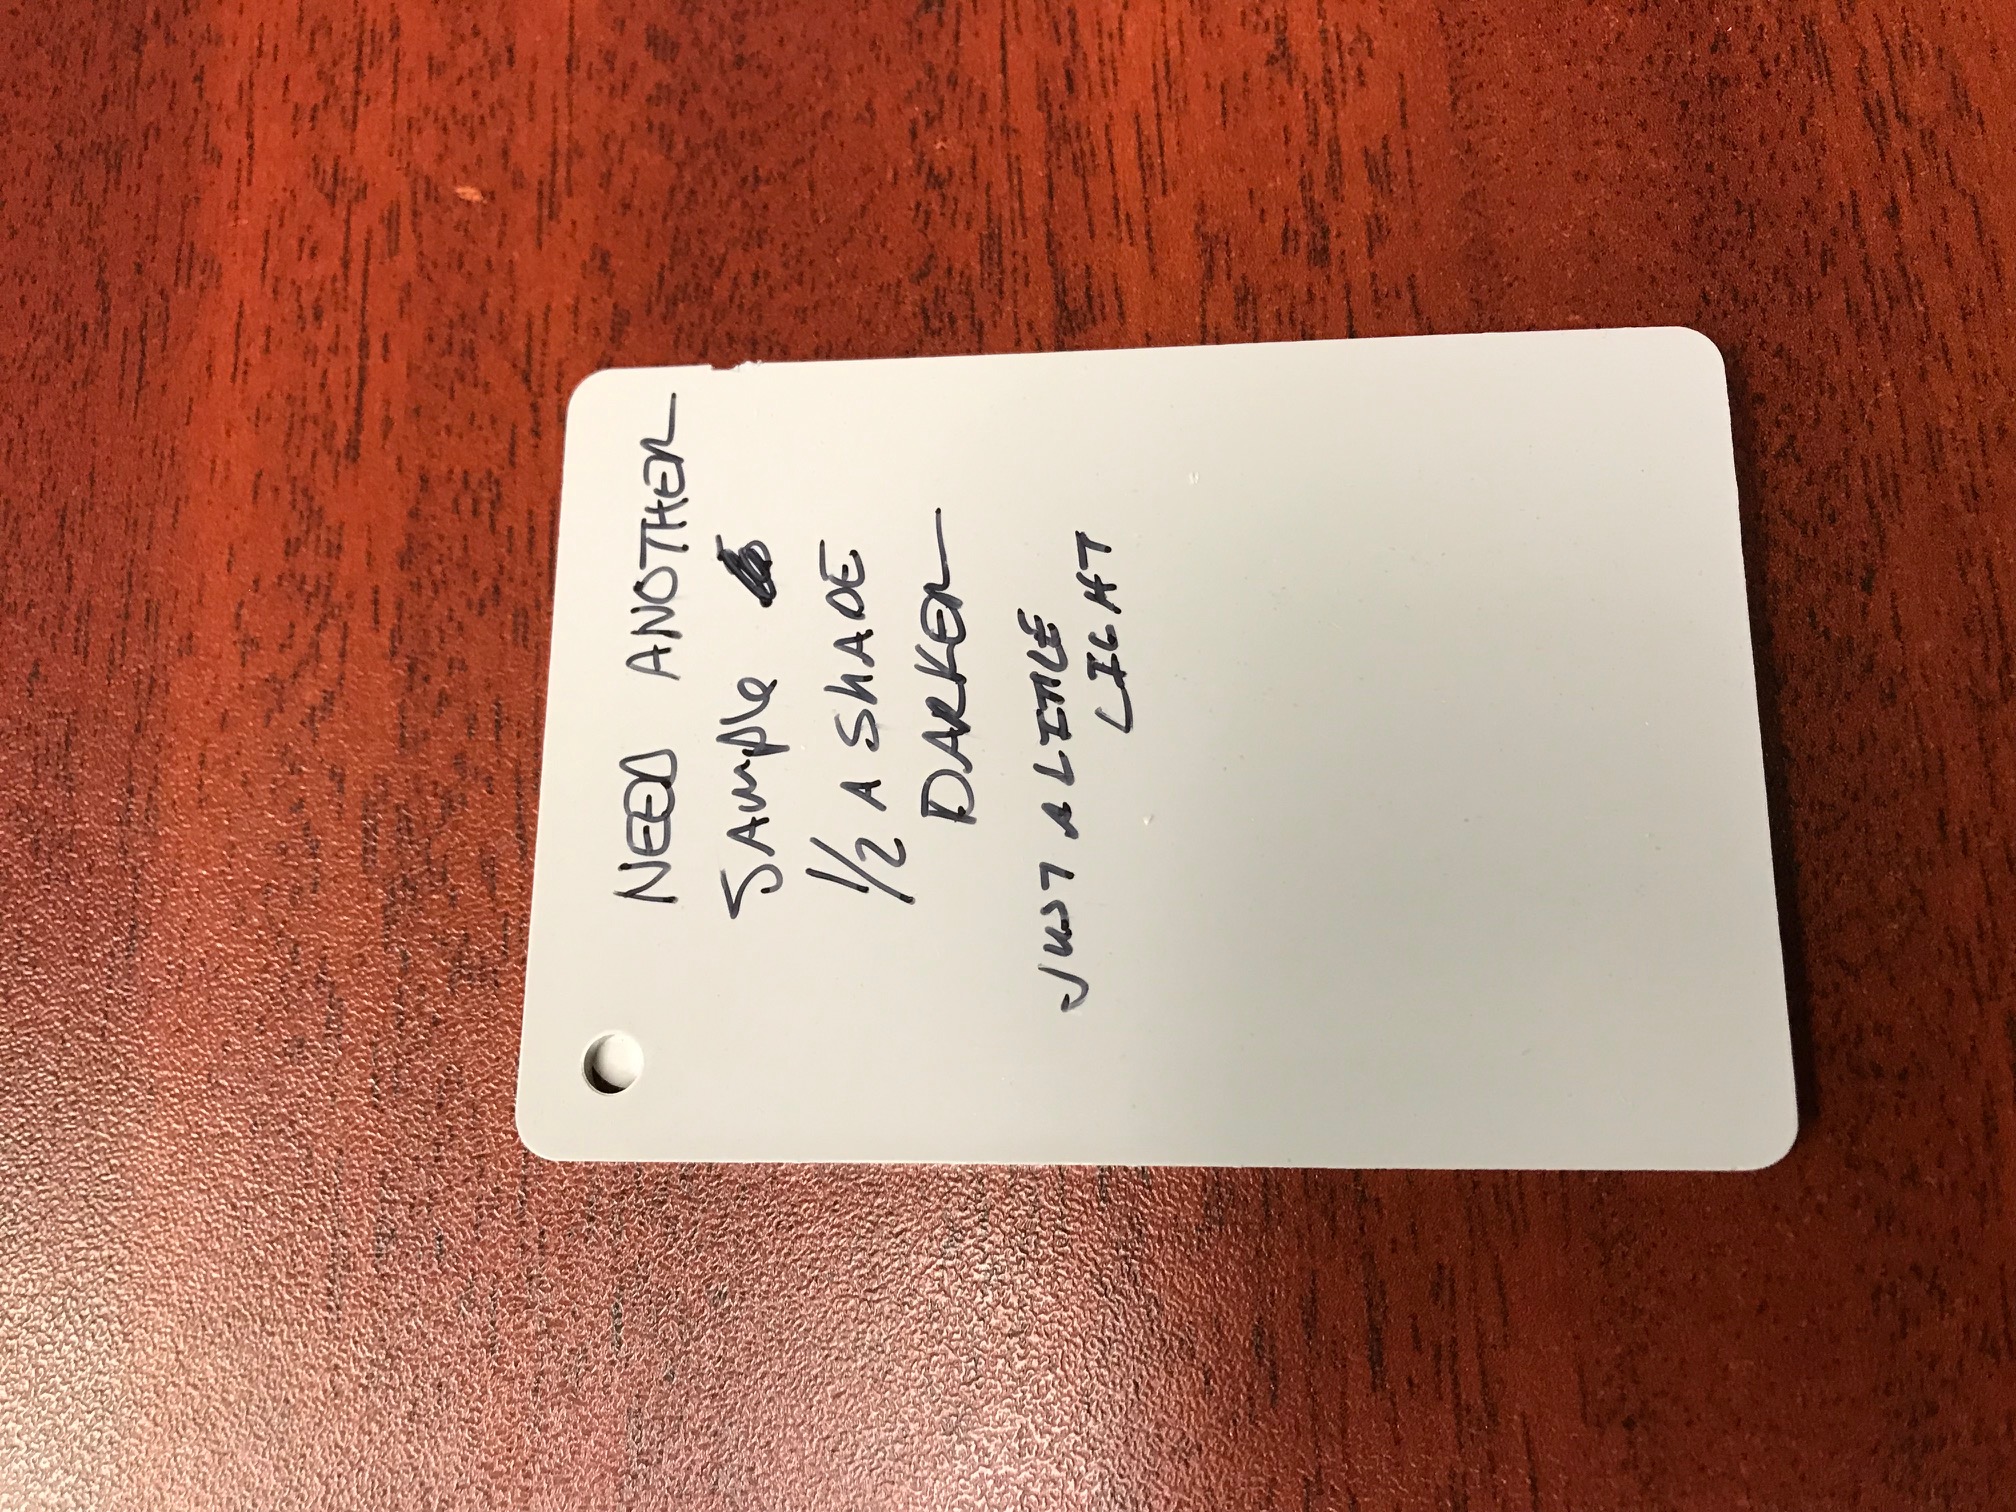 NEED ANOTHER
SAMple
1/2 A SHADE
DARKER
JUST A LITTLE
LIGHT